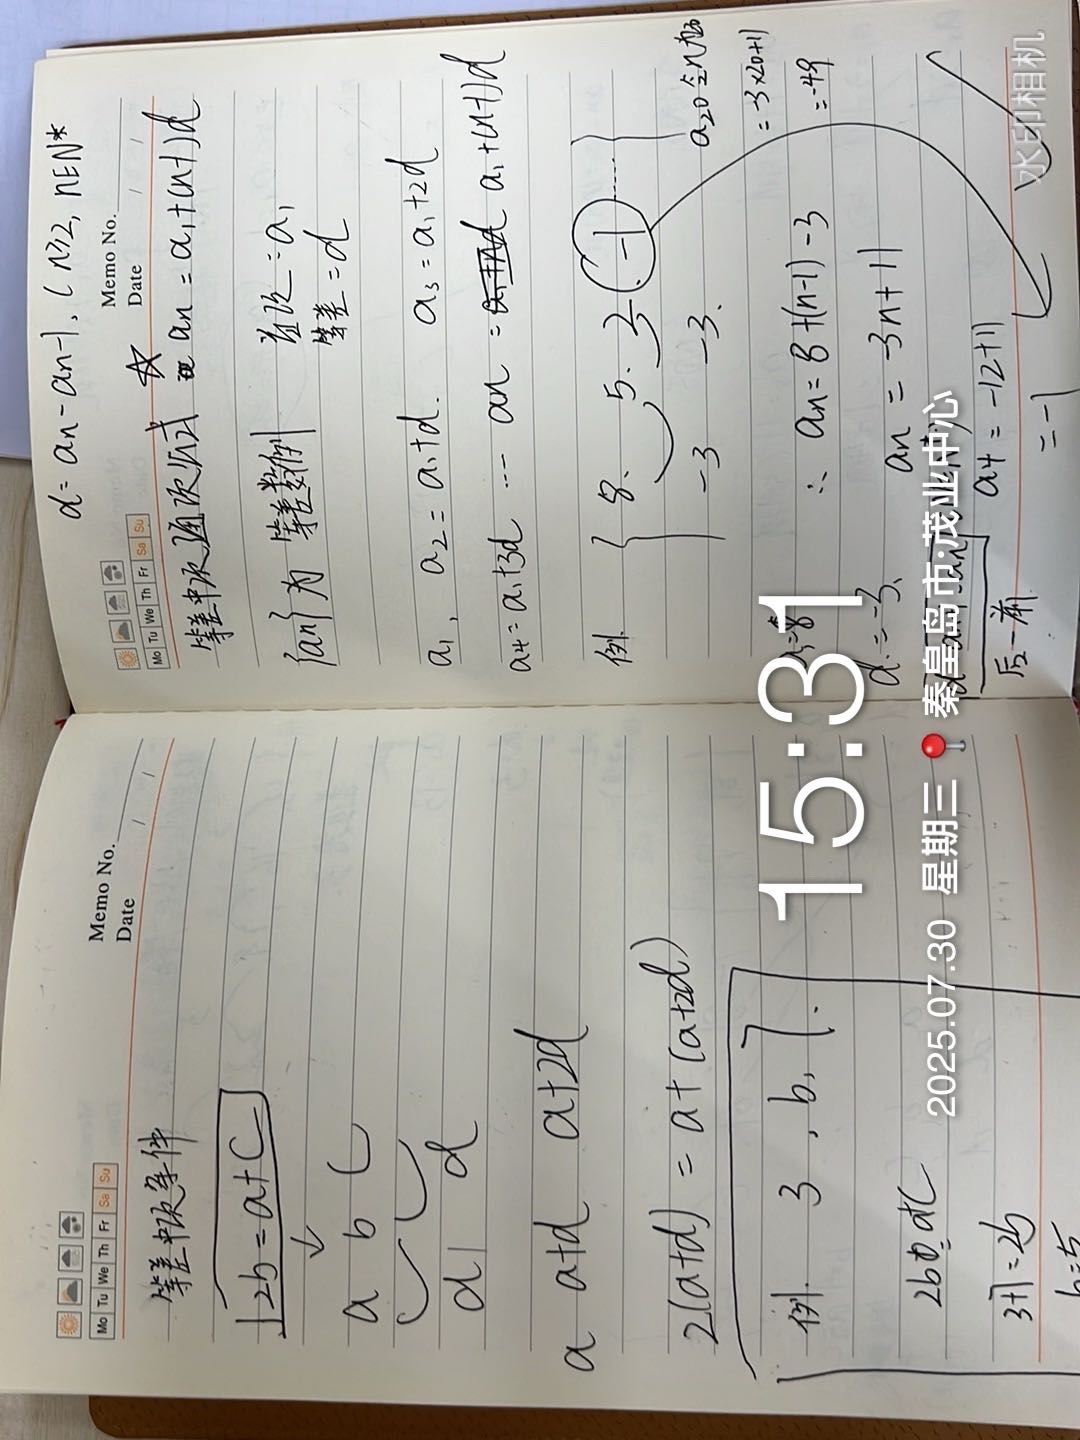 Mo Tu We Th Fr Sa Su
Memo No.
Date / /
等差中项条件
2b=a+c
a b c
d d
a a+d a+2d
2(a+d) = a+(a+2d)
例. 3, b, 7.
2b=a+c
3+7=2b
b=5
d= an-an-1, (n≥2, n∈N*
Mo Tu We Th Fr Sa Su
Memo No.
Date / /
等差中项通项公式 ☆ an = a1+(n-1)d
{an} 为 等差数列 首项=a1
等差=d
a1, a2=a1+d. a3=a1+2d
a4=a1+3d ... an = a1+(n-1)d
例. { 8. 5. 2. -1 ...... }
-3 -3 -3.
a20
=-3×20+11
=-49
∴ an=8+(n-1)-3
d=-3. an = -3n+11
a4=-12+11
=-1
后-前
15:31
2025.07.30 星期三 秦皇岛市·茂业中心
水印相机